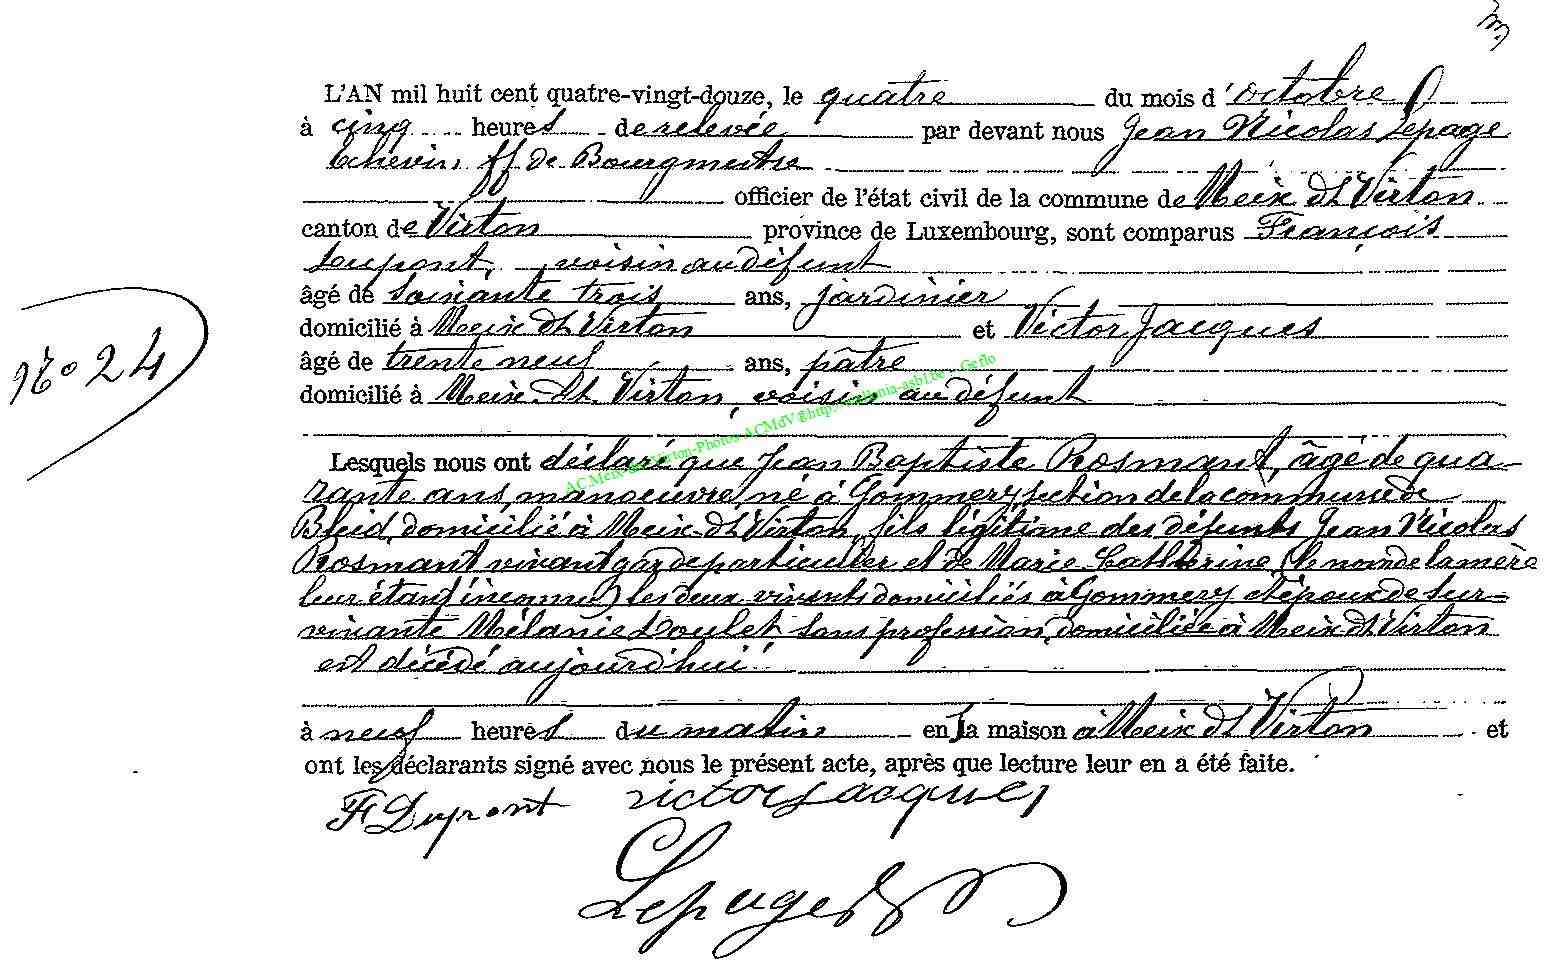 L'AN mil huit cent quatre-vingt-douze, le quatre du mois d'octobre
à cinq heures de relevée par devant nous Jean Nicolas Lepage
Echevin ff de Bourgmestre
officier de l'état civil de la commune de Meix dt Virton
canton de Virton province de Luxembourg, sont comparus François
Dupont, voisin au défunt
âgé de soixante trois ans, jardinier
domicilié à Meix dt Virton et Victor Jacques
âgé de trente neuf ans, pâtre
domicilié à Meix-dt Virton, voisin au défunt
N° 24
Lesquels nous ont déclaré que Jean Baptiste Rosmant, âgé de qua-
rante ans, manoeuvre, né à Gommery section de la commune de
Bleid, domicilié à Meix-dt Virton, fils légitime des défunts Jean Nicolas
Rosmant vivant garde particulier et de Marie Catherine (le nom de la mère
leur étant inconnu) les deux vivants domiciliés à Gommery et époux de sur-
vivante Mélanie Goulet sans profession, domiciliée à Meix dt Virton
est décédé aujourd'hui
à neuf heures du matin en sa maison à Meix dt Virton et
ont les déclarants signé avec nous le présent acte, après que lecture leur en a été faite.
F Dupont Victor Jacques
Lepage